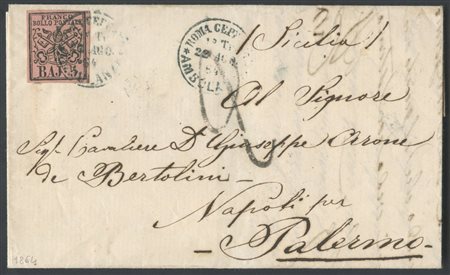 FRANCO
BOLLO POSTALE
BAJ 8
ROMA
64
(Sicilia)
Al Signore
Sig.r Cavaliere D. Giuseppe Arone
de Bertolini
Napoli per
Palermo
1864